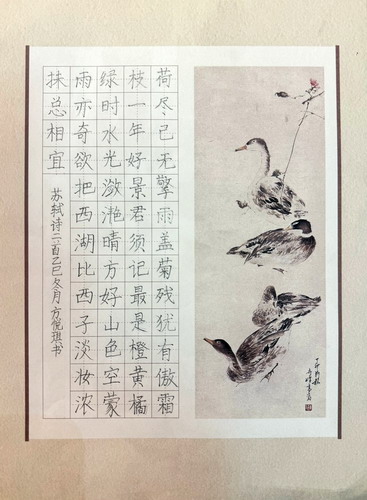 荷尽已无擎雨盖菊残犹有傲霜
枝一年好景君须记最是橙黄橘
绿时水光潋滟晴方好山色空蒙
雨亦奇欲把西湖比西子淡妆浓
抹总相宜
苏轼诗二首乙巳冬月方悦书